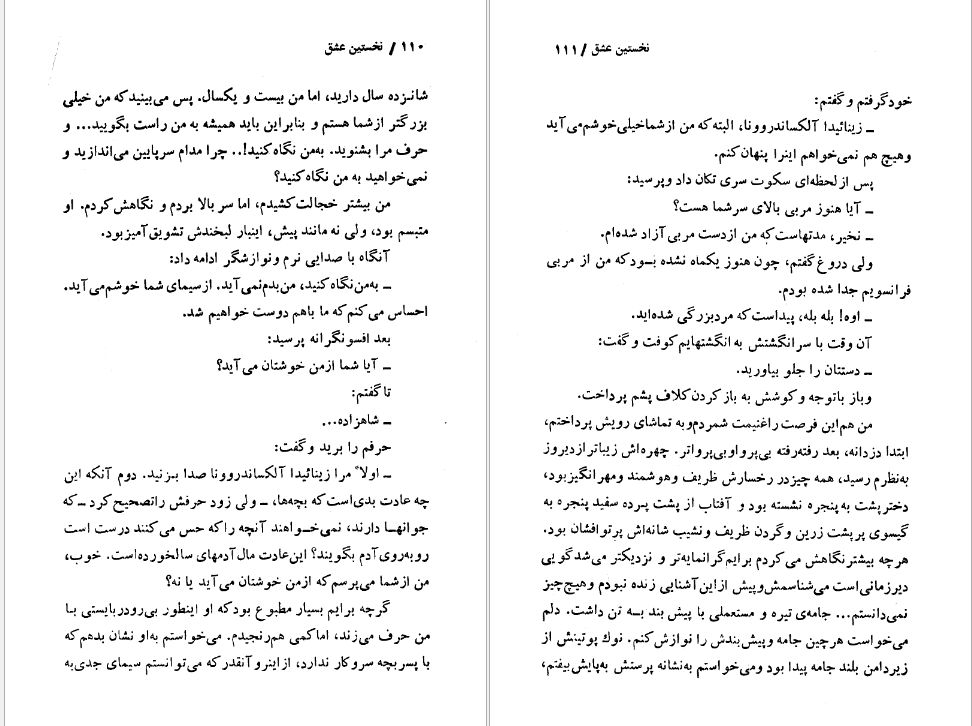 ۱۱۰ / نخستین عشق
شانزده سال دارید، اما من بیست و یکسال. پس می‌بینید که من خیلی
بزرگتر از شما هستم و بنابراین باید همیشه به من راست بگویید... و
حرف مرا بشنوید. به‌من نگاه کنید!.. چرا مدام سرپایین می‌اندازید و
نمی‌خواهید به من نگاه کنید؟
من بیشتر خجالت کشیدم، اما سر بالا بردم و نگاهش کردم. او
متبسم بود، ولی نه مانند پیش، اینبار لبخندش تشویق‌آمیز بود.
آنگاه با صدایی نرم و نوازشگر ادامه داد:
ــ به‌من نگاه کنید، من بدم نمی‌آید. از سیمای شما خوشم می‌آید.
احساس می‌کنم که ما باهم دوست خواهیم شد.
بعد افسونگرانه پرسید:
ــ آیا شما ازمن خوشتان می‌آید؟
تا گفتم:
ــ شاهزاده...
حرفم را برید و گفت:
ــ اولاً مرا زینائیدا آلکساندروونا صدا بزنید. دوم آنکه این
چه عادت بدی‌است که بچه‌ها، ــ ولی زود حرفش را تصحیح کرد ــ که
جوانها دارند، نمی‌خواهند آنچه را که حس می‌کنند درست است
روبه‌روی آدم بگویند؟ این عادت مال آدمهای سالخورده است. خوب،
من از شما می‌پرسم که ازمن خوشتان می‌آید یا نه؟
گرچه برایم بسیار مطبوع بود که او اینطور بی‌رودربایستی با
من حرف می‌زند، اما کمی هم رنجیدم. می‌خواستم به‌او نشان بدهم که
با پسربچه سروکار ندارد، ازاینرو آنقدر که می‌توانستم سیمای جدی به
نخستین عشق / ۱۱۱
خود گرفتم و گفتم:
ــ زینائیدا آلکساندروونا، البته که من از شما خیلی خوشم می‌آید
و هیچ هم نمی‌خواهم اینرا پنهان کنم.
پس از لحظه‌ای سکوت سری تکان داد و پرسید:
ــ آیا هنوز مربی بالای سر شما هست؟
ــ نخیر، مدتهاست که من از دست مربی آزاد شده‌ام.
ولی دروغ گفتم، چون هنوز یکماه نشده بود که من از مربی
فرانسویم جدا شده بودم.
ــ اوه! بله بله، پیداست که مرد بزرگی شده‌اید.
آن وقت با سر انگشتش به انگشتهایم کوفت و گفت:
ــ دستتان را جلو بیاورید.
و باز باتوجه و کوشش به باز کردن کلاف پشم پرداخت.
من هم این فرصت را غنیمت شمردم و به تماشای رویش پرداختم،
ابتدا دزدانه، بعد رفته‌رفته بی‌پروا و بی‌پرواتر. چهره‌اش زیباتر از دیروز
به‌نظرم رسید، همه چیز در رخسارش ظریف و هوشمند و مهرانگیز بود،
دختر پشت به پنجره نشسته بود و آفتاب از پشت پرده سفید پنجره به
گیسوی پرپشت زرین و گردن ظریف و نشیب شانه‌اش پرتوافشان بود.
هرچه بیشتر نگاهش می‌کردم برایم گرانمایه‌تر و نزدیکتر می‌شد گویی
دیرزمانی است می‌شناسمش و پیش از این آشنایی زنده نبودم و هیچ چیز
نمی‌دانستم... جامه‌ی تیره و مستعملی با پیش بند به تن داشت. دلم
می‌خواست هر چین جامه و پیش بندش را نوازش کنم. نوك پوتینش از
زیر دامن بلند جامه پیدا بود و می‌خواستم به‌نشانه پرستش به‌پایش بیفتم،